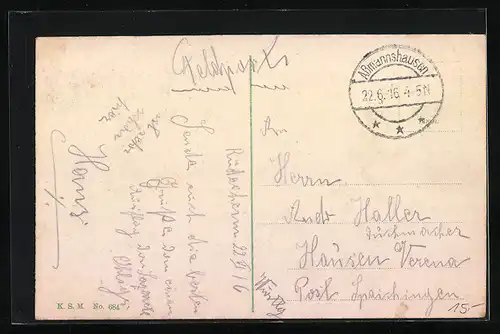 Feldpost
Aßmannshausen
22.6.16 4-5N
An
Herrn
Andr Haller
Tuchmacher
Hausen Verena
Post Spaichingen
Rüdesheim 22 VI 16
Sende euch die besten
Grüße von einem
Ausflug vom
Hans
K. S. M. No. 684
15.-